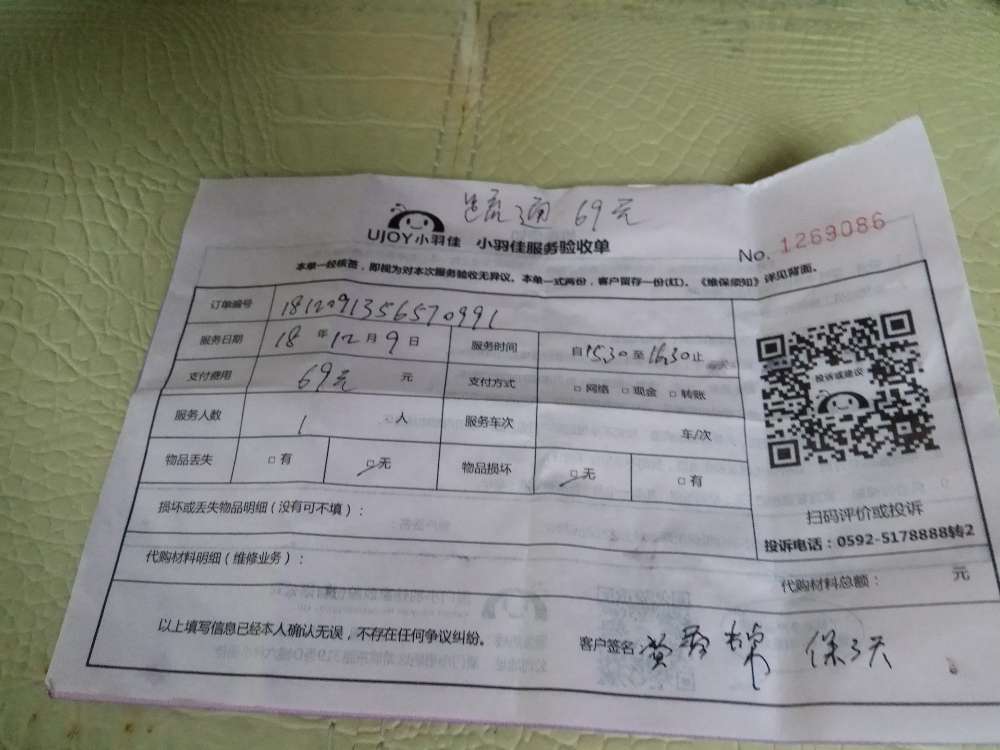 疏通 69元
UJOY小羽佳 小羽佳服务验收单
No. 1269086
本单一经核签，即视为对本次服务验收无异议。本单一式两份，客户留存一份(红)。《维保须知》详见背面。
订单编号 1812091356570991
服务日期 18 年 12 月 9 日 服务时间 自 15:30 至 16:30 止
支付费用 69元 元 支付方式 □ 网络 □ 现金 □ 转账
服务人数 1 人 服务车次 车/次
物品丢失 □ 有 □ 无 物品损坏 □ 无 □ 有
损坏或丢失物品明细（没有可不填）：
代购材料明细（维修业务）：
代购材料总额： 元
以上填写信息已经本人确认无误，不存在任何争议纠纷。
客户签名: 黄 保3天
投诉或建议
扫码评价或投诉
投诉电话：0592-5178888转2